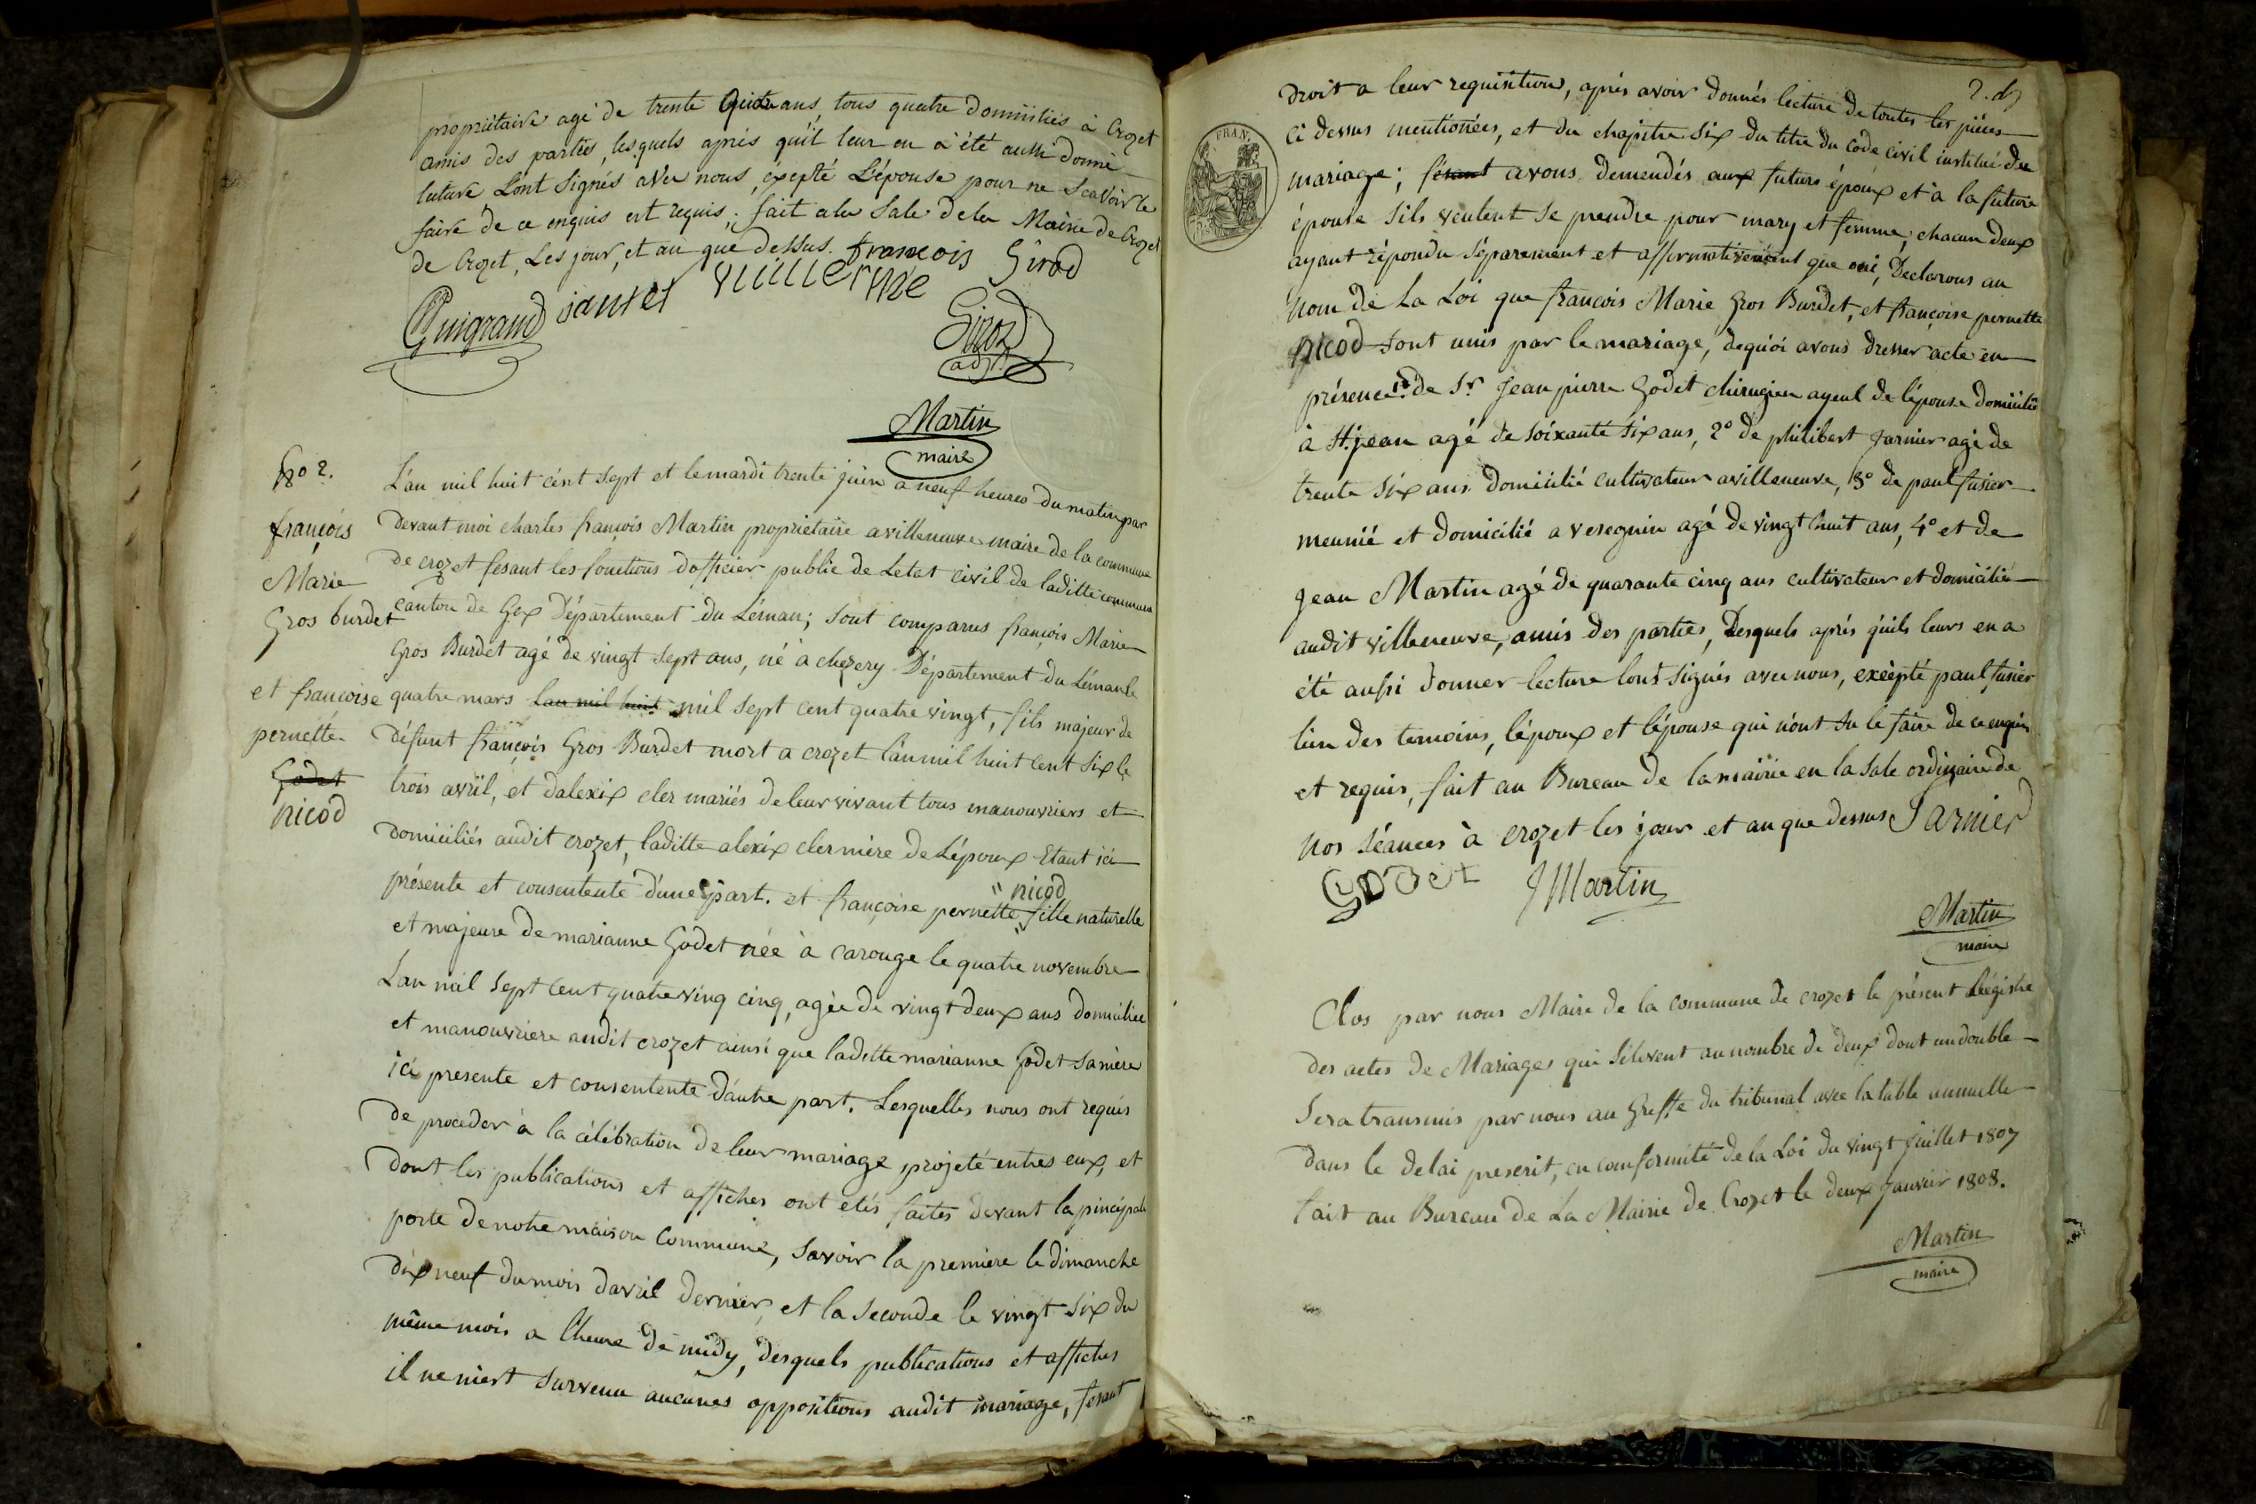 propriétaire agé de trente ans, tous quatre domiciliés à Crozet
amis des parties, lesquels après qu'il leur en a été aussi donné
luture Lont signés avec nous, exepté L'épouse pour ne Scavoir le
faire de ce enquis est requis; fait a la Sale de la Mairie de Crozet
de Crozet, Les jour, et an que dessus. françois Girod
Guigrand jantet vuillermoz
Girod
adjt
Martin
maire
No 2.
françois
Marie
Gros burdet
et françoise
pernette
Godet
nicod
L'an mil huit cent sept et le mardi trente juin a neuf heures du matin par
Devant moi charles françois Martin propriétaire a villeneuve maire de la commune
de crozet fesant les fonctions d'officier public de Letat civil de laditte commune
canton de Gex Département du Léman; sont comparus françois Marie
Gros Burdet agé de vingt sept ans, né à chezery Département du Léman le
quatre mars lan mil huit mil sept cent quatre vingt, fils majeur de
Défunt françois Gros Burdet mort a crozet l'an mil huit cent six le
trois avril, et dalexix cler mariés de leur vivant tous manouvriers et
domiciliés audit crozet, laditte alexix cler mère de Lépoux Etant ici
présente et consentente d'une part. et françoise pernette " nicod " fille naturelle
et majeure de marianne Godet née à carouge le quatre novembre
Lan mil sept cent quatre ving cinq, agée de vingt deux ans domiciliée
et manouvriere audit crozet ainsi que laditte marianne Godet sa mère
ici presente et consentente d'autre part. Lesquelles nous ont requis
de proceder à la célébration de leur mariage projeté entres eux, et
dont les publications et affiches ont etés faites devant la principale
porte de notre maison Commune, Savoir la premiere le dimanche
dix neuf du mois davril dernier, et la seconde le vingt six du
même mois a lheure de midy, desquels publications et affiches
il ne niest survenu aucunes oppositions audit mariage, fesant
droit a leur requisition, après avoir donnés lecture de toutes les pièces
ci dessus mentionées, et du chapitre six du titre du code civil institué du
mariage; fesant avons demendés aux futurs époux et à la future
épouse sils veulent se prendre pour mary et femme, chacun deux
ayant répondu séparement et affirmativement que oui, Declarons au
nom de La Loi que françois Marie Gros Burdet, et françoise pernette
nicod sont unis par le mariage, dequoi avons dresser acte en
présence 1º de Sr Jean pierre Godet chirugien ayeul de lépouse domicilié
à St. jean agé de soixante six ans, 2º de philibert Jarnier agé de
trente six ans domicilié cultivateur a villeneuve, 3º de paul fusier
meunié et domicilié a veregnin agé de vingt huit ans, 4º et de
Jean Martin agé de quarante cinq ans cultivateur et domicilié
audit villeneuve, amis des parties, Desquels après quils leurs en a
été aussi donner lecture lont signés avec nous, excepté paul fusier
lun des temoins, lépoux et lépouse qui n'ont su le faire de ce enquis
et requis, fait au Bureau de la mairie en la sale ordinaire de
nos séances à crozet les jour et an que dessus Jarnier
Godet J Martin
Martin
maire
Clos par nous Maire de la commune de crozet le présent Régistre
des actes de Mariages qui sélevent au nombre de deux dont un double
Sera transmis par nous au Greffe du tribunal avec la table annuelle
dans le delai prescrit, en conformité de la Loi du vingt juillet 1807
fait au Bureau de La Mairie de Crozet le deux Janvier 1808.
Martin
maire